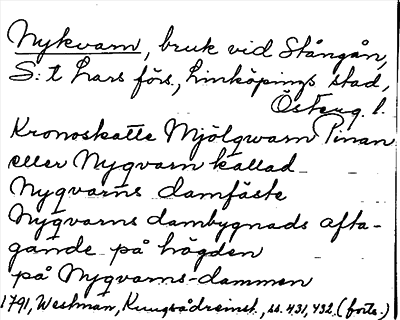 Nykvarn, bruk vid Stångån,
S:t Lars förs, Linköpings stad,
Österg. l.
Kronoskatte Mjölqwarn Pinan
eller Nyqvarn kallad
Nyqvarns damfäste
Nyqvarns dambygnads afta-
gande på högden
på Nyqvarns-dammen
1791, Westman, Kungsådreinst., ss. 431, 432. (forts.)